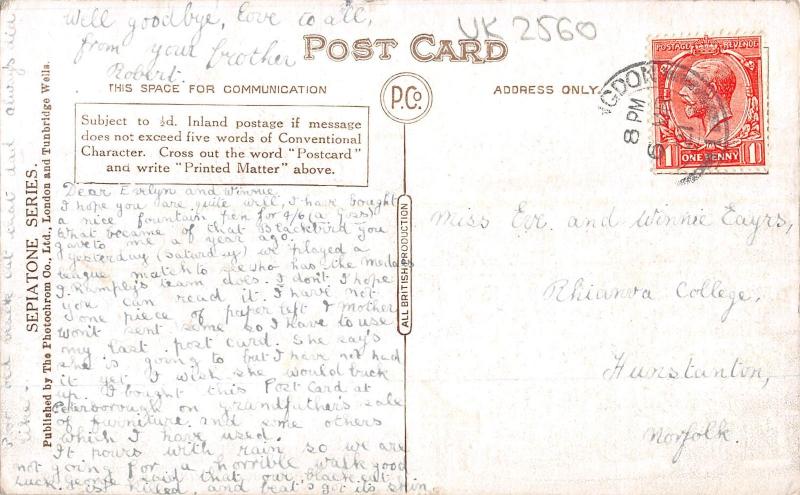 Well goodbye, love to all,
from your brother
Robert.
UK 2560
POST CARD
THIS SPACE FOR COMMUNICATION
P.Co.
ADDRESS ONLY.
Subject to ½d. Inland postage if message
does not exceed five words of Conventional
Character. Cross out the word "Postcard"
and write "Printed Matter" above.
Dear Evelyn and Winnie.
I hope you are quite well, I have bought
a nice fountain pen for 4/6 (a Swan)
What became of that Blackbird you
gave to me a year ago.
yesterday (Saturday) we played a
league match to see who has the medals
J. Rumpley's team does. I don't I hope
you can read it. I have not
one piece of paper left I mother
won't sent some so I have to use
my last post card. She say's
she is going to but I have not had
it yet I wish she would buck
up. I bought this Post Card at
Peterborough on grandfather's sale
of furniture. and some others
which I have used.
It pours with rain so we are
not going for a horrible walk good
Luck. George said that our black cat
is and I got its skin.
SEPIATONE SERIES.
Published by The Photochrom Co., Ltd., London and Tunbridge Wells.
ALL BRITISH PRODUCTION
NGDON
8 PM
POSTAGE REVENUE
1 ONE PENNY 1
Miss Eve. and Winnie Eayrs,
Rhianva College,
Hunstanton,
Norfolk.